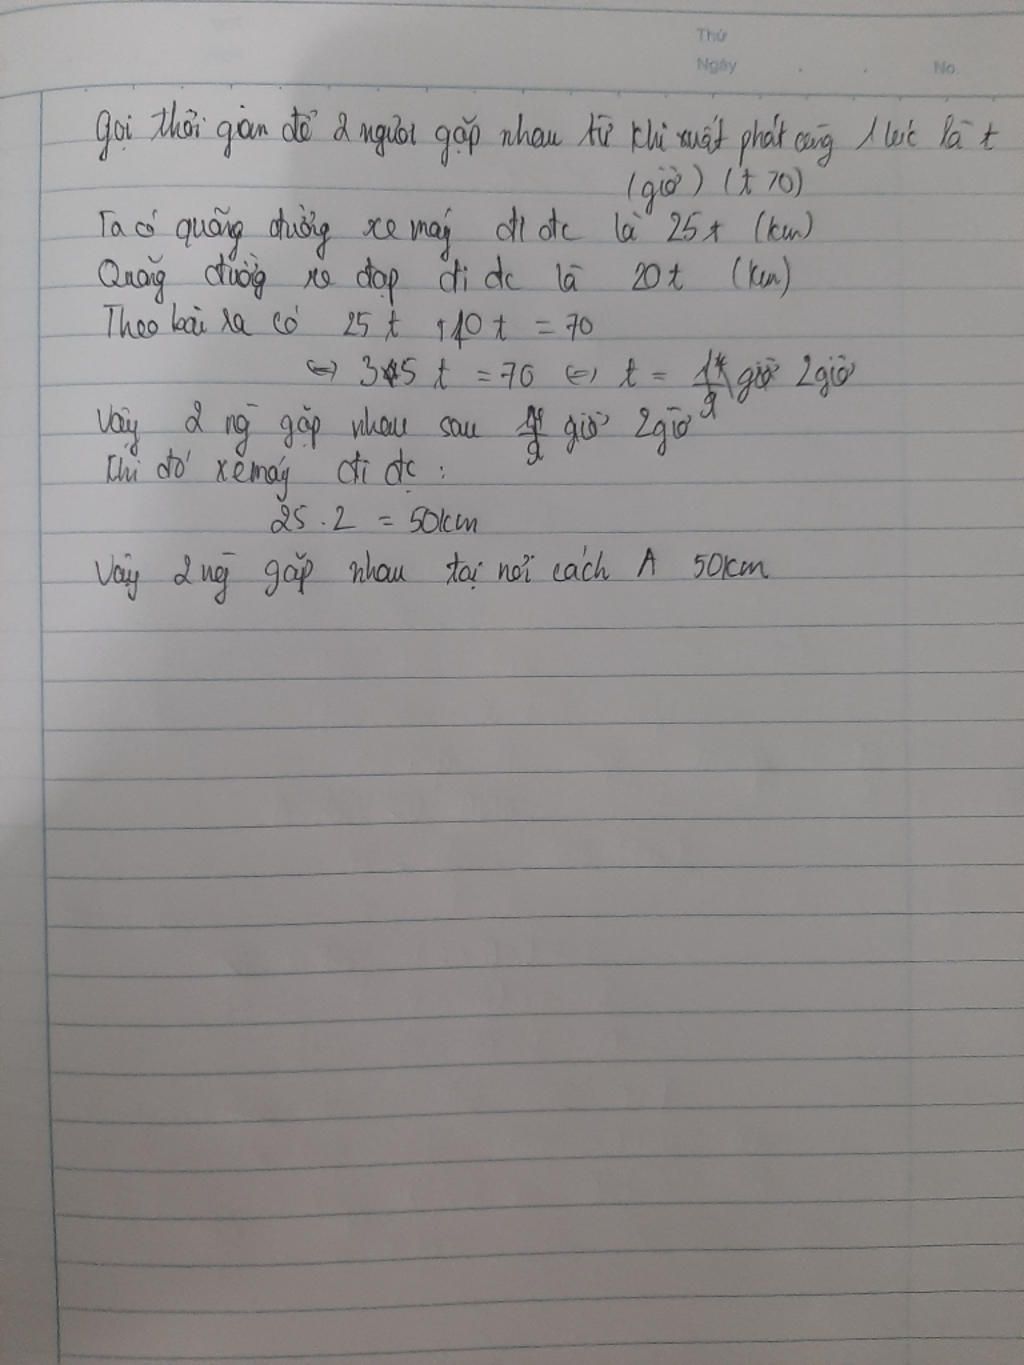 Thứ
Ngày No
Gọi thời gian để 2 người gặp nhau từ khi xuất phát cùng 1 lúc là t
(giờ) (t > 0)
Ta có quãng đường xe máy đi đc là 25t (km)
Quãng đường xe đạp đi đc là 20t (km)
Theo bài ra có 25t + 10t = 70
⇔ 35t = 70 ⇔ t = 14/9 giờ 2giờ
Vậy 2 ng gặp nhau sau 14/9 giờ 2giờ
Khi đó xe máy đi đc :
25 . 2 = 50km
Vậy 2 ng gặp nhau tại nơi cách A 50km